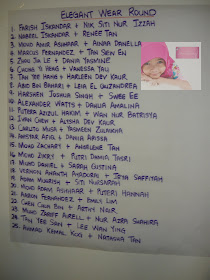 ELEGANT WEAR ROUND
1. FARISH ISKANDAR + NIK SITI NUR IZZAH
2. NABRIL ISKANDAR + RENEE TAN
3. MOHD AMIR ASHHAR + AINNA DANELLA
4. MARCUS FERNANDEZ + TAN SIEW EN
5. ZHAO JIA LE + DANIA YASMINE
6. CHONG YI HENG + VANESSA YAU
7. TAN TEE HANG + HARLEEN DEV KAUR
8. ABG BEN BAHARI + LEIA EL QUZANDREA
9. HARSHEN JOSHUA SINGH + SWEE EE
10. ALEXANDER WATTS + DAHLIA AMALINA
11. PUTERA AZIZUL HAKIM + WAN NUR BATRISYA
12. IVAN CHEW + ALYSHA DEV KAUR
13. CARLITO MUSA + YASMEEN ZULAIKHA
14. AMSYAR AFIQ + DANIA ARISSA
15. MOHD ZACHARY + ANGELENE TAN
16. MOHD ZIKRY + PUTRI DAHIA TASRI
17. MOHD DANIEL + SARAH GUSTINA
18. VERNON ANANTH AYADURAI + IRYA SAFFIYAH
19. ADAM MUKRISH + SITI NURSARAH
20. MOHD ADAM ASHGHAR + PUTERI HANNAH
21. AARON FERNANDEZ + EMILY LIM
22. CHEN CHUN BIN + AFTHY NOOR
23. MOHD ZARIFF AZRELL + NUR AZRA SHAHIRA
24. TAN TEE SEN + LEE WAN YING
25. AHMAD KAMAL KOGI + NATASHA TAN